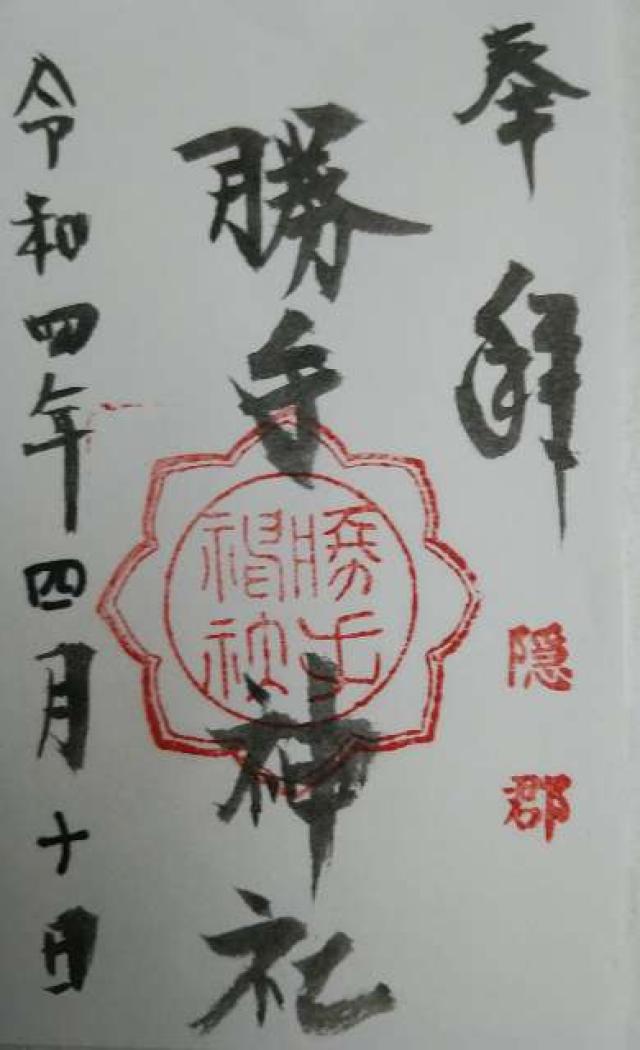 奉拝
隠郡
勝手神社
勝手
神社
令和四年四月十日